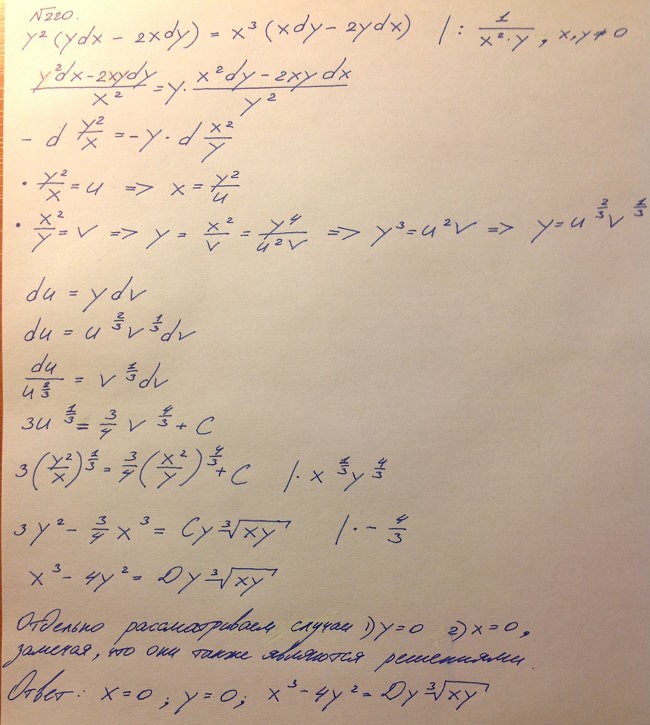 №220.
y²(ydx - 2xdy) = x³(xdy - 2ydx) | : 1/(x²·y), x,y≠0
(y²dx - 2xydy)/x² = y · (x²dy - 2xydx)/y²
- d y²/x = -y · d x²/y
· y²/x = u => x = y²/u
· x²/y = v => y = x²/v = y⁴/(u²v) => y³ = u²v => y = u^(2/3) v^(1/3)
du = ydv
du = u^(2/3) v^(1/3) dv
du/u^(2/3) = v^(1/3) dv
3u^(1/3) = 3/4 v^(4/3) + C
3(y²/x)^(1/3) = 3/4 (x²/y)^(4/3) + C | · x^(1/3) y^(4/3)
3y² - 3/4 x³ = Cy ∛(xy) | · - 4/3
x³ - 4y² = Dy ∛(xy)
Отдельно рассматриваем случаи 1) y=0 2) x=0,
замечая, что они также являются решениями.
Ответ: x=0; y=0; x³ - 4y² = Dy ∛(xy)